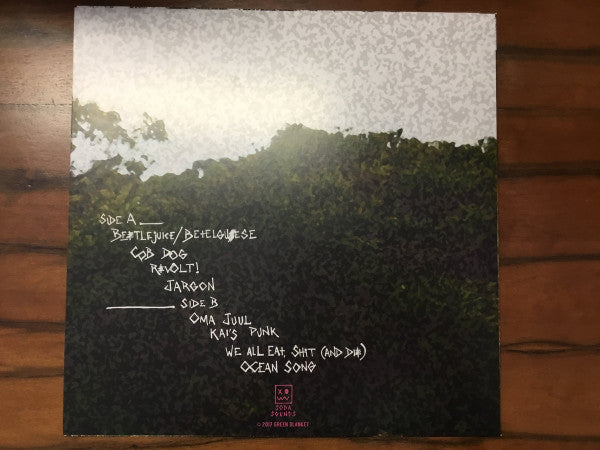 SIDE A
BE#TLEJUICE/BETELGU#ESE
COB DOG
R#VOLT!
JARGON
SIDE B
OMA JUUL
KAI'S PUNK
WE ALL EAT SHIT (AND DI#)
OCEAN SONG
X O
SODA
SOUNDS
© 2017 GREEN BLANKET